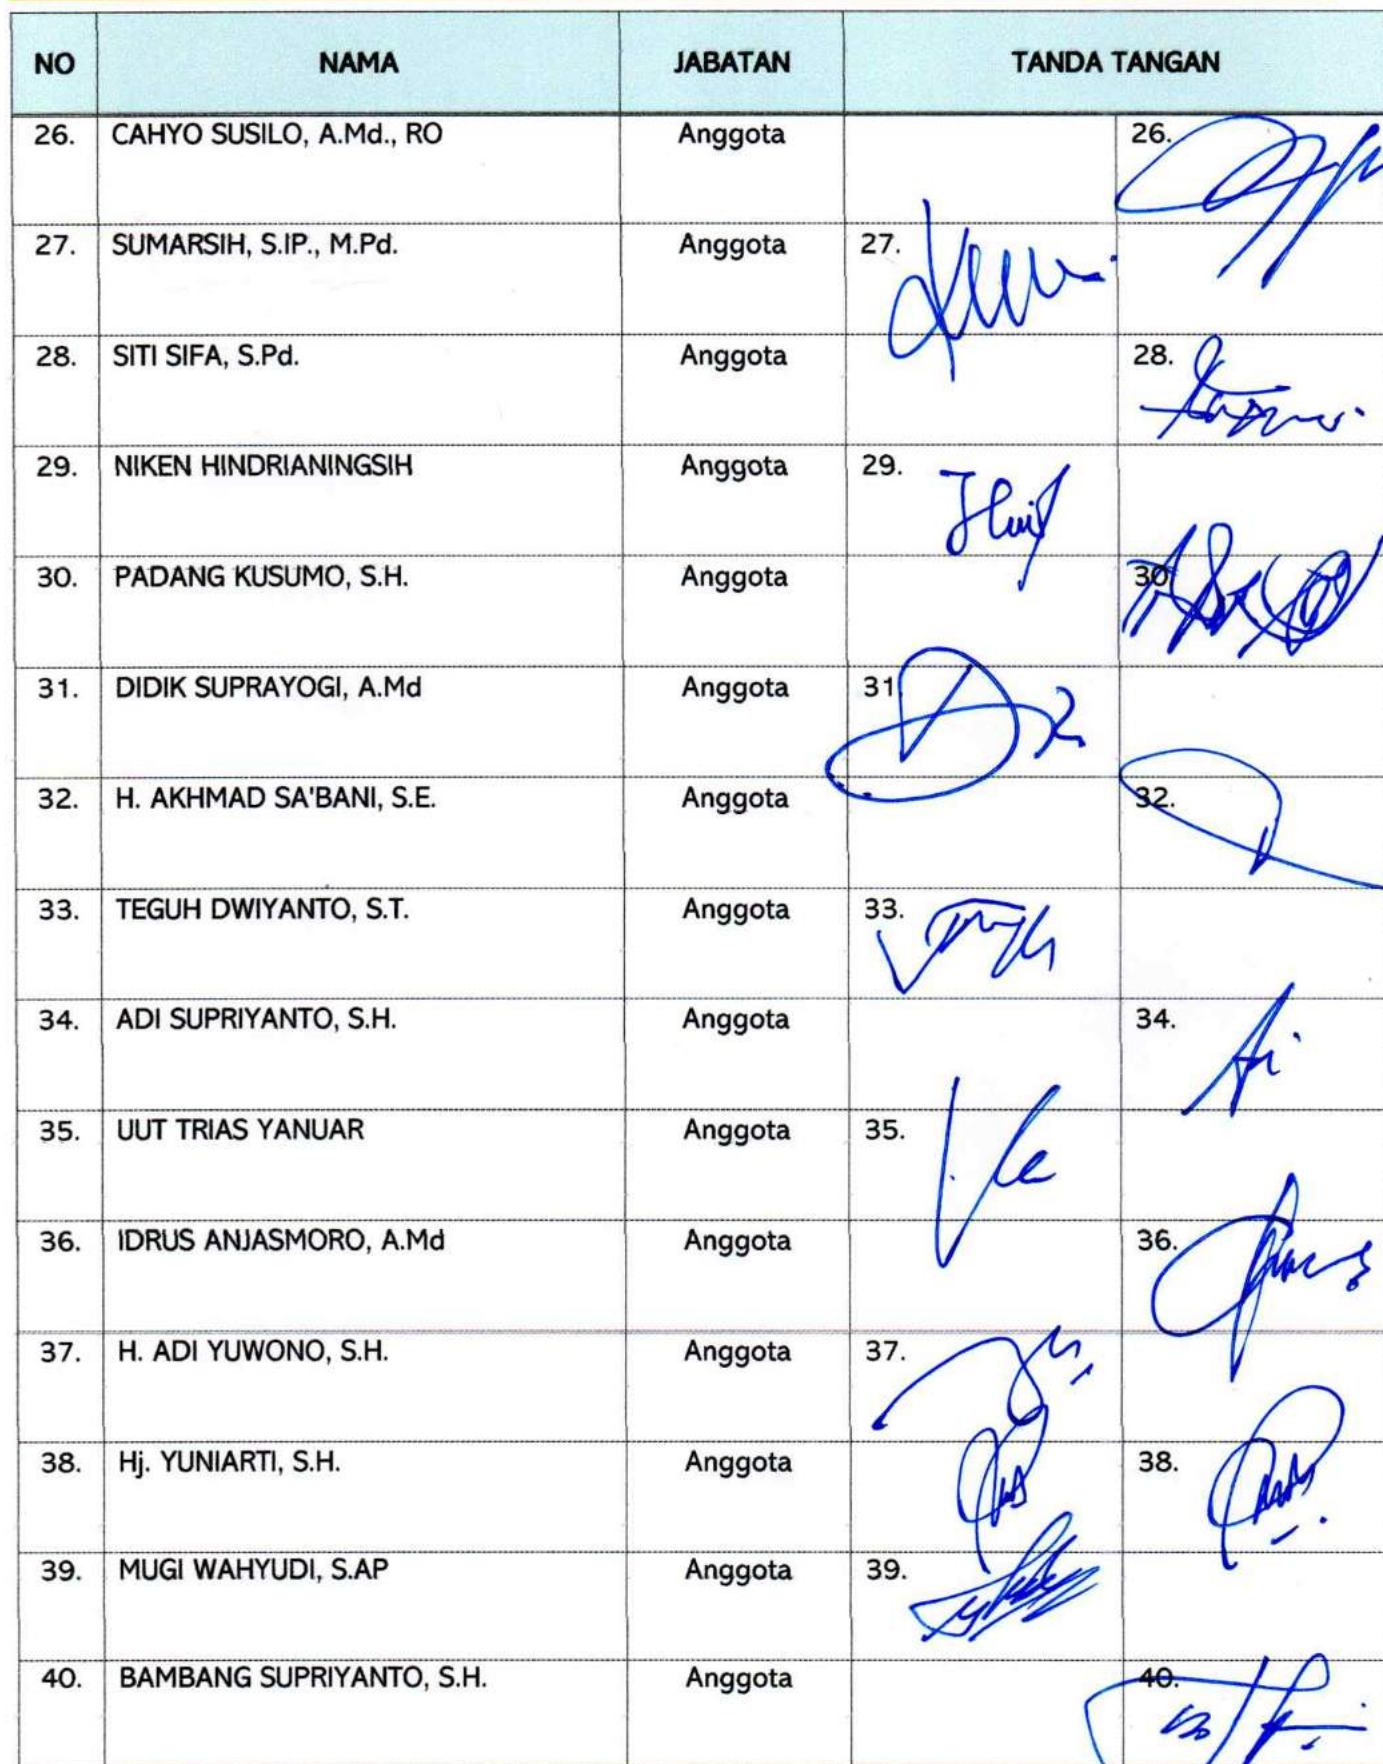 NO NAMA JABATAN TANDA TANGAN
26. CAHYO SUSILO, A.Md., RO Anggota 26.
27. SUMARSIH, S.IP., M.Pd. Anggota 27.
28. SITI SIFA, S.Pd. Anggota 28.
29. NIKEN HINDRIANINGSIH Anggota 29.
30. PADANG KUSUMO, S.H. Anggota 30
31. DIDIK SUPRAYOGI, A.Md Anggota 31
32. H. AKHMAD SA'BANI, S.E. Anggota 32.
33. TEGUH DWIYANTO, S.T. Anggota 33.
34. ADI SUPRIYANTO, S.H. Anggota 34.
35. UUT TRIAS YANUAR Anggota 35.
36. IDRUS ANJASMORO, A.Md Anggota 36.
37. H. ADI YUWONO, S.H. Anggota 37.
38. Hj. YUNIARTI, S.H. Anggota 38.
39. MUGI WAHYUDI, S.AP Anggota 39.
40. BAMBANG SUPRIYANTO, S.H. Anggota 40.